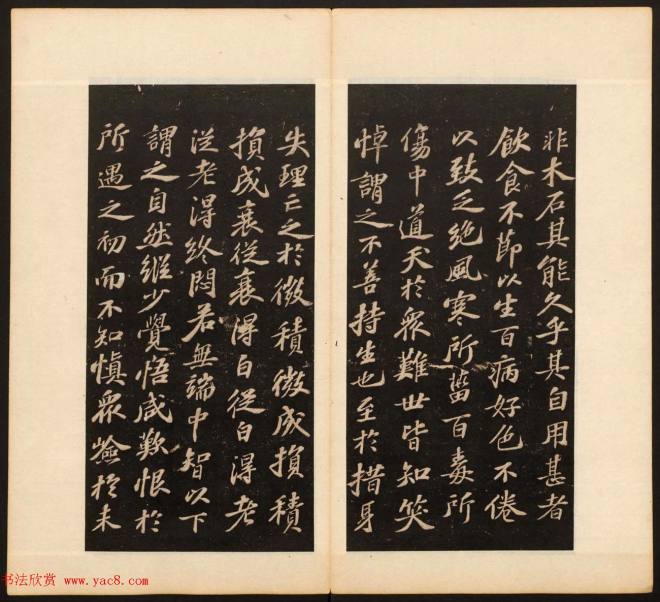 非木石其能久乎其自用甚者
飲食不節以生百病好色不倦
以致乏絶風寒所菑百毒所
傷中道夭於衆難世皆知笑
悼謂之不善持生也至於措身
失理亡之於微積微成損積
損成衰從衰得白從白得老
從老得終悶若無端中智以下
謂之自然縱少覺悟咸歎恨於
所遇之初而不知慎衆險於未
书法欣赏 www.yac8.com